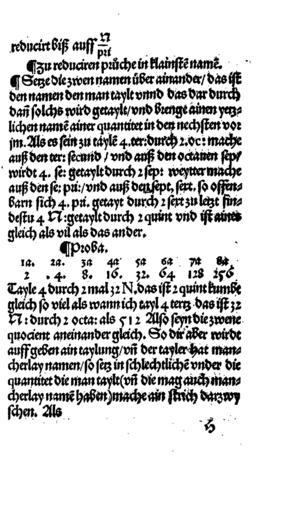 reducirt biß auff N/pri
¶Zu reduciren prüche in klainste namē.
¶Setze die zwen namen über ainander/ das ist
den namen den man taylt vnnd das dar durch
dañ solchs wird getaylt/vnd brenge ainen yetz-
lichen namē ainer quantitet in den nechsten vor
jm. Als es sein zu taylē 4.ter:durch 2.oc: mache
auß den ter: secund / vnd auß den octauen sep/
wirdt 4. se: getaylt durch 2 sep: weytter mache
auß den se; pri:/vnd auß den sept, sext. so offen-
barn sich 4. pri. getayt durch 2 sext zu letzt fin-
destu 4 N:getaylt durch 2 quint vnd ist aines
gleich als vil als das ander.
¶Proba.
1a. 2a. 3a 4a 5a 6a 7a 8a
2 . 4. 8. 16. 32. 64 128 256
Tayle 4 durch 2 mal 32 N.das ist 2 quint kumbt
gleich so viel als wann ich tayl 4 tertz das ist 32
N: durch 2 octa: als 512 Also seyn die zwene
quocient aneinander gleich. So dir aber würde
auff geben ain taylung/vñ der tayler hat man-
cherlay namen/so setz in schlechtlichē vnder die
quantitet die man taylt(vñ die mag auch man-
cherlay namē haben)mache ain strich darzwy
schen. Als
H